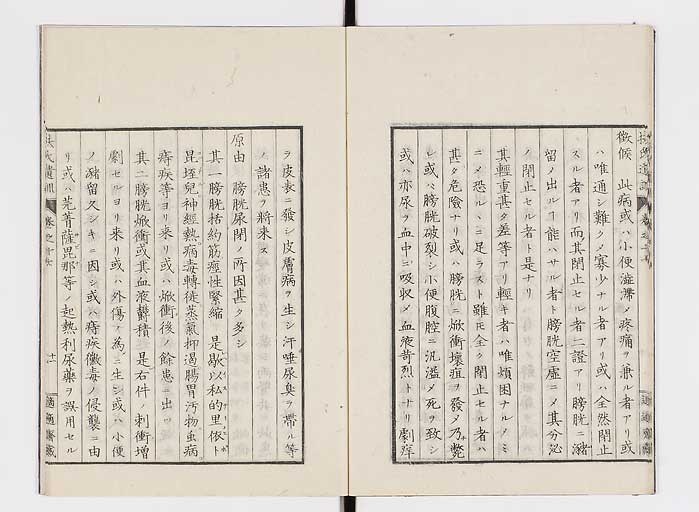 扶氏遺訓
徴候 此病或ハ小便澁滯〆疼痛ヲ兼ル者アリ或
ハ唯通シ難ク〆寡少ナル者アリ或ハ全然閉止
スル者アリ而其閉止セル者ニ證アリ膀胱ニ瀦
留ノ出ルヿ能ハサル者ト膀胱空虚ニ〆其分泌
ノ閉止セル者ト是ナリ
其輕重甚タ差等アリ輕キ者ハ唯煩困ナルノミ
ニ〆恐ルヽニ足ラスト雖𪜈全ク閉止セル者ハ
甚タ危險ナリ或ハ膀胱ニ焮衝壊疽ヲ發〆乃斃
レ或ハ膀胱破裂シ小便腹腔ニ汎溢〆死ヲ致シ
或ハ亦尿ヲ血中ニ吸収〆血液苛烈トナリ劇痒
ヲ皮表ニ發シ皮膚病ヲ生シ汗唾尿臭ヲ帶ル等
ノ諸患ヲ將來ス
原由 膀胱尿閉ノ所因甚タ多シ
其一膀胱括約筋痙性緊縮 是歇以私的里依卜
昆垤兒神經熱病毒轉徙蒸氣抑遏腸胃汚物虫病
痔疾等ヨリ来リ或ハ焮衝後ノ餘患ニ出ッ
其二膀胱焮衝或其血液欝積 是右件ノ刺衝増
劇セルヨリ来リ或ハ外傷ノ為ニ生シ或ハ小便
ノ瀦留久シキニ因シ或ハ痔疾黴毒ノ侵襲ニ由
リ或ハ芫菁薩毘那等ノ起熱利尿藥ヲ誤用セル
扶氏遺訓
適適齋藏